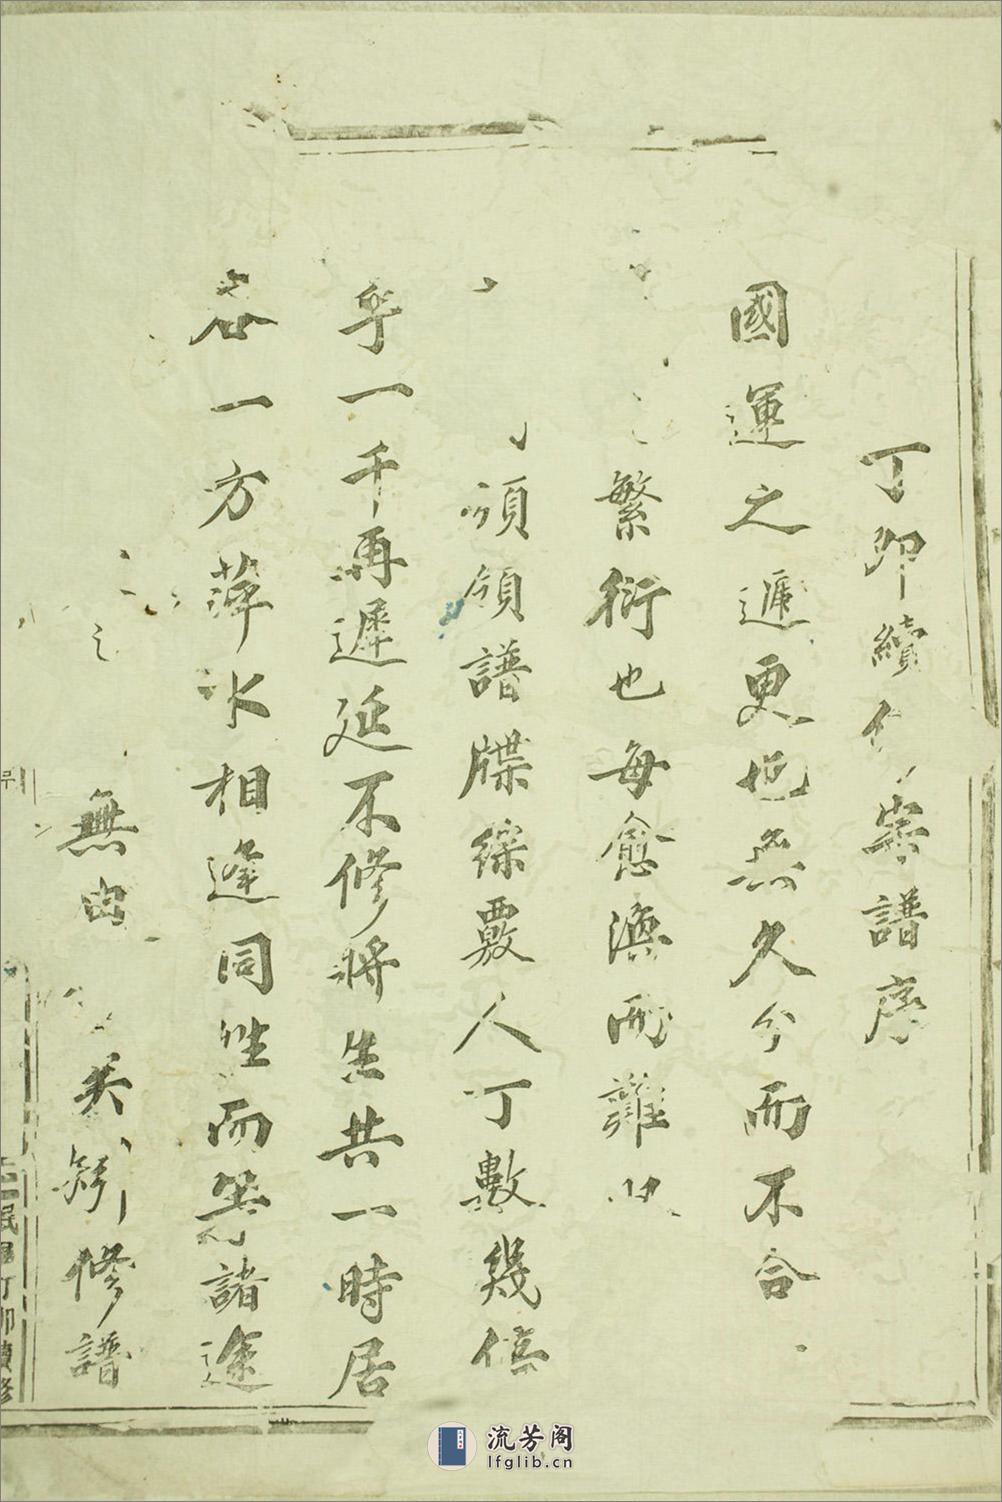 丁卯續修宗譜序
國運之遞更也無久分而不合
之繁衍也每愈渙而難以
須領譜牒綜覈人丁數幾倍
乎一千再遲延不修將生共一時居
各一方萍水相逢同姓而等諸途
無由 矣矧修譜
民國丁卯續修
流芳阁
lfglib.cn